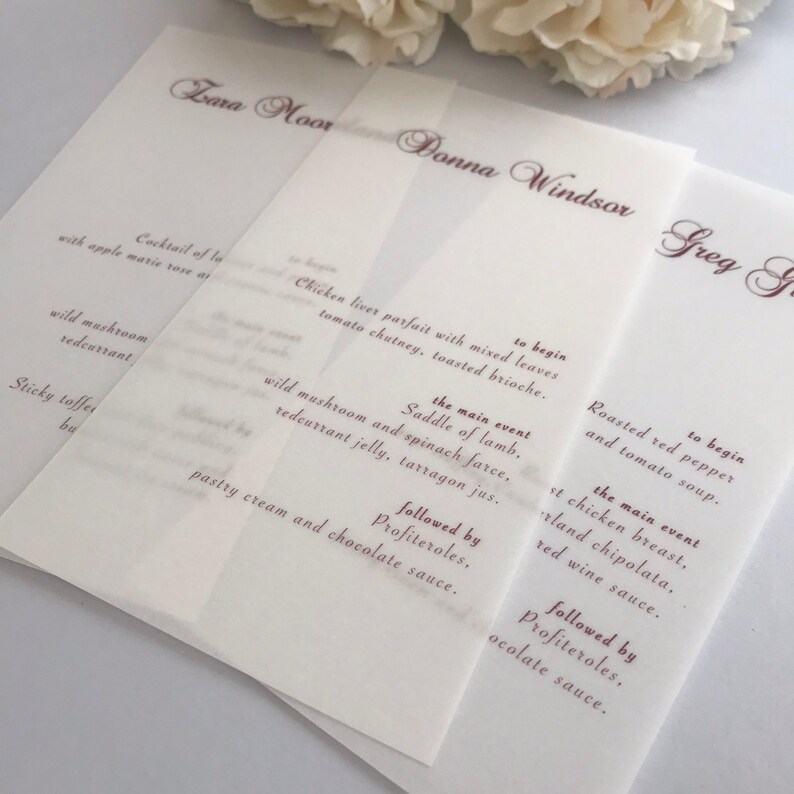 Zara Moorland
Cocktail of
with apple marie rose
to begin
the main event
Saddle of lamb,
wild mushroom
redcurrant
followed by
Sticky toffee
Donna Windsor
to begin
Chicken liver parfait with mixed leaves
tomato chutney, toasted brioche.
the main event
Saddle of lamb,
wild mushroom and spinach farce,
redcurrant jelly, tarragon jus.
followed by
Profiteroles,
pastry cream and chocolate sauce.
Greg
to begin
Roasted red pepper
and tomato soup.
the main event
chicken breast,
chipolata,
red wine sauce.
followed by
Profiteroles,
chocolate sauce.